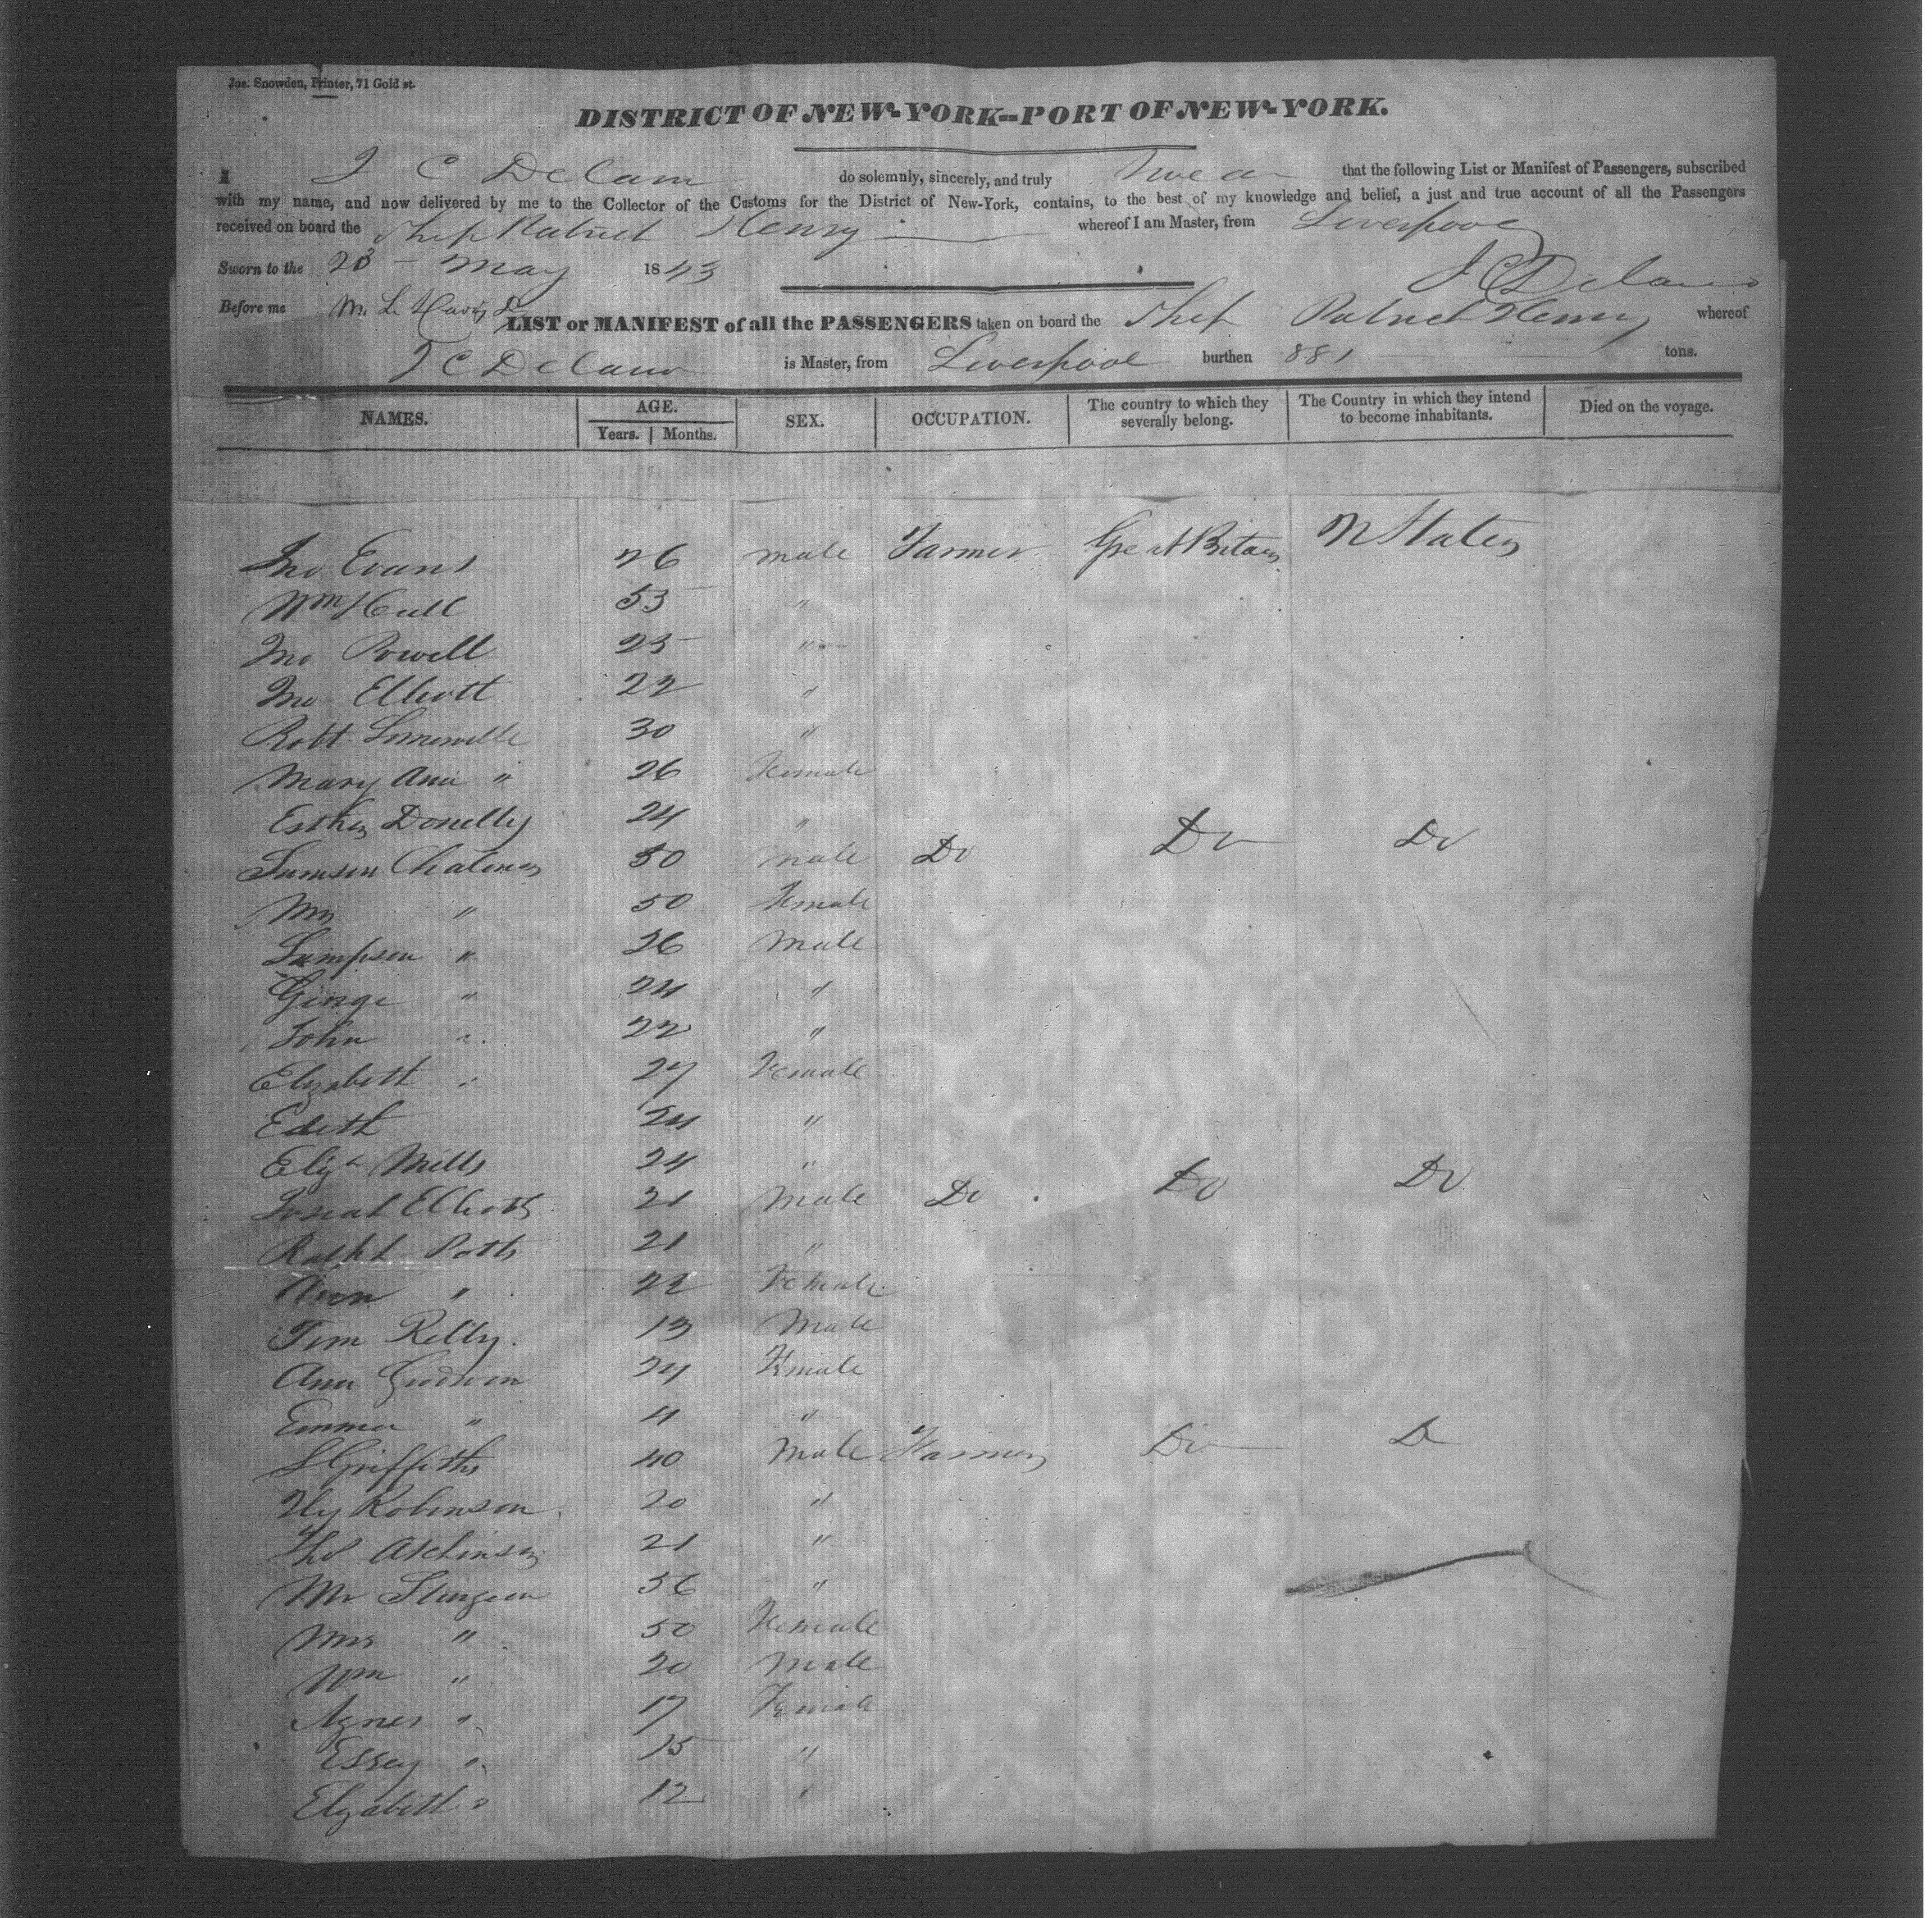 Jos. Snowden, Printer, 71 Gold st.
DISTRICT OF NEW-YORK--PORT OF NEW-YORK.
I J C Delano do solemnly, sincerely, and truly Swear that the following List or Manifest of Passengers, subscribed
with my name, and now delivered by me to the Collector of the Customs for the District of New-York, contains, to the best of my knowledge and belief, a just and true account of all the Passengers
received on board the Ship Patrick Henry whereof I am Master, from Liverpool
Sworn to the 23 May 1843 J C Delano
Before me M. L. Davis
LIST or MANIFEST of all the PASSENGERS taken on board the Ship Patrick Henry whereof
J C Delano is Master, from Liverpool burthen 881 tons.
NAMES. AGE. Years. | Months. SEX. OCCUPATION. The country to which they severally belong. The Country in which they intend to become inhabitants. Died on the voyage.
Jno Evans 26 male Farmer Great Britain U States
Wm Hull 53 "
Jno Powell 25 "
Jno Elliott 22 "
Robt Somerville 30 "
Mary Ann " 26 Female
Esther Donelly 24 "
Samson 50 male Do Do Do
Mrs " 50 Female
Sampson " 26 Male
George " 24 "
John " 22 "
Elizabeth " 27 Female
Edith 24 "
Eliza Mills 24 "
Josiah Elliott 21 Male Do Do Do
Ralph Potts 21 "
Ann " 22 Female
Tim Reilly 13 Male
Ann Godwin 24 Female
Emma " 4 "
S Griffiths 40 Male Farmer Do D
Hy Robinson 20 "
Thos Atchinson 21 "
Mr Sturgeon 56 "
Mrs " 50 Female
Wm " 20 Male
Agnes " 17 Female
Essey " 15 "
Elizabeth " 12 "